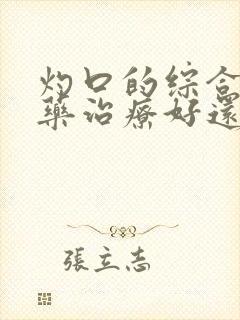 灼口的综合
藥治療好還
張立志